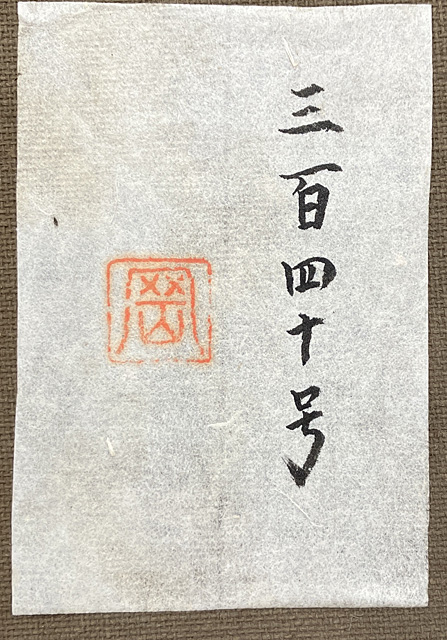 三百四十号
岡